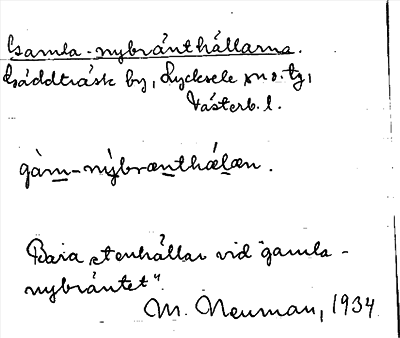 Gamla-nybränthällarna.
Gäddträsk by, Lycksele sn o. tg,
Västerb. l.
gàm-nýbrænthælæn.
Bara stenhällar vid "gamla-
nybräntet".
M. Neuman, 1934